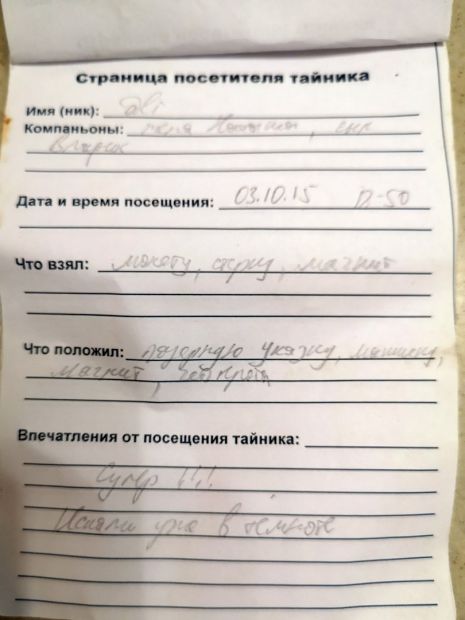 Страница посетителя тайника
Имя (ник):
Компаньоны: жена Наталья, сын
Владик
Дата и время посещения: 03.10.15
Что взял: монету, серку, магнит
Что положил: лазерную указку, машинку,
магнит,
Впечатления от посещения тайника:
Супер !!!
Искали уже в темноте